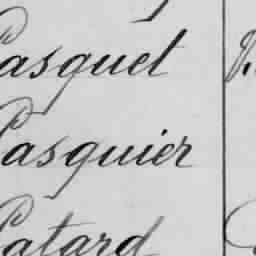 Pasquet
Pasquier
Patard